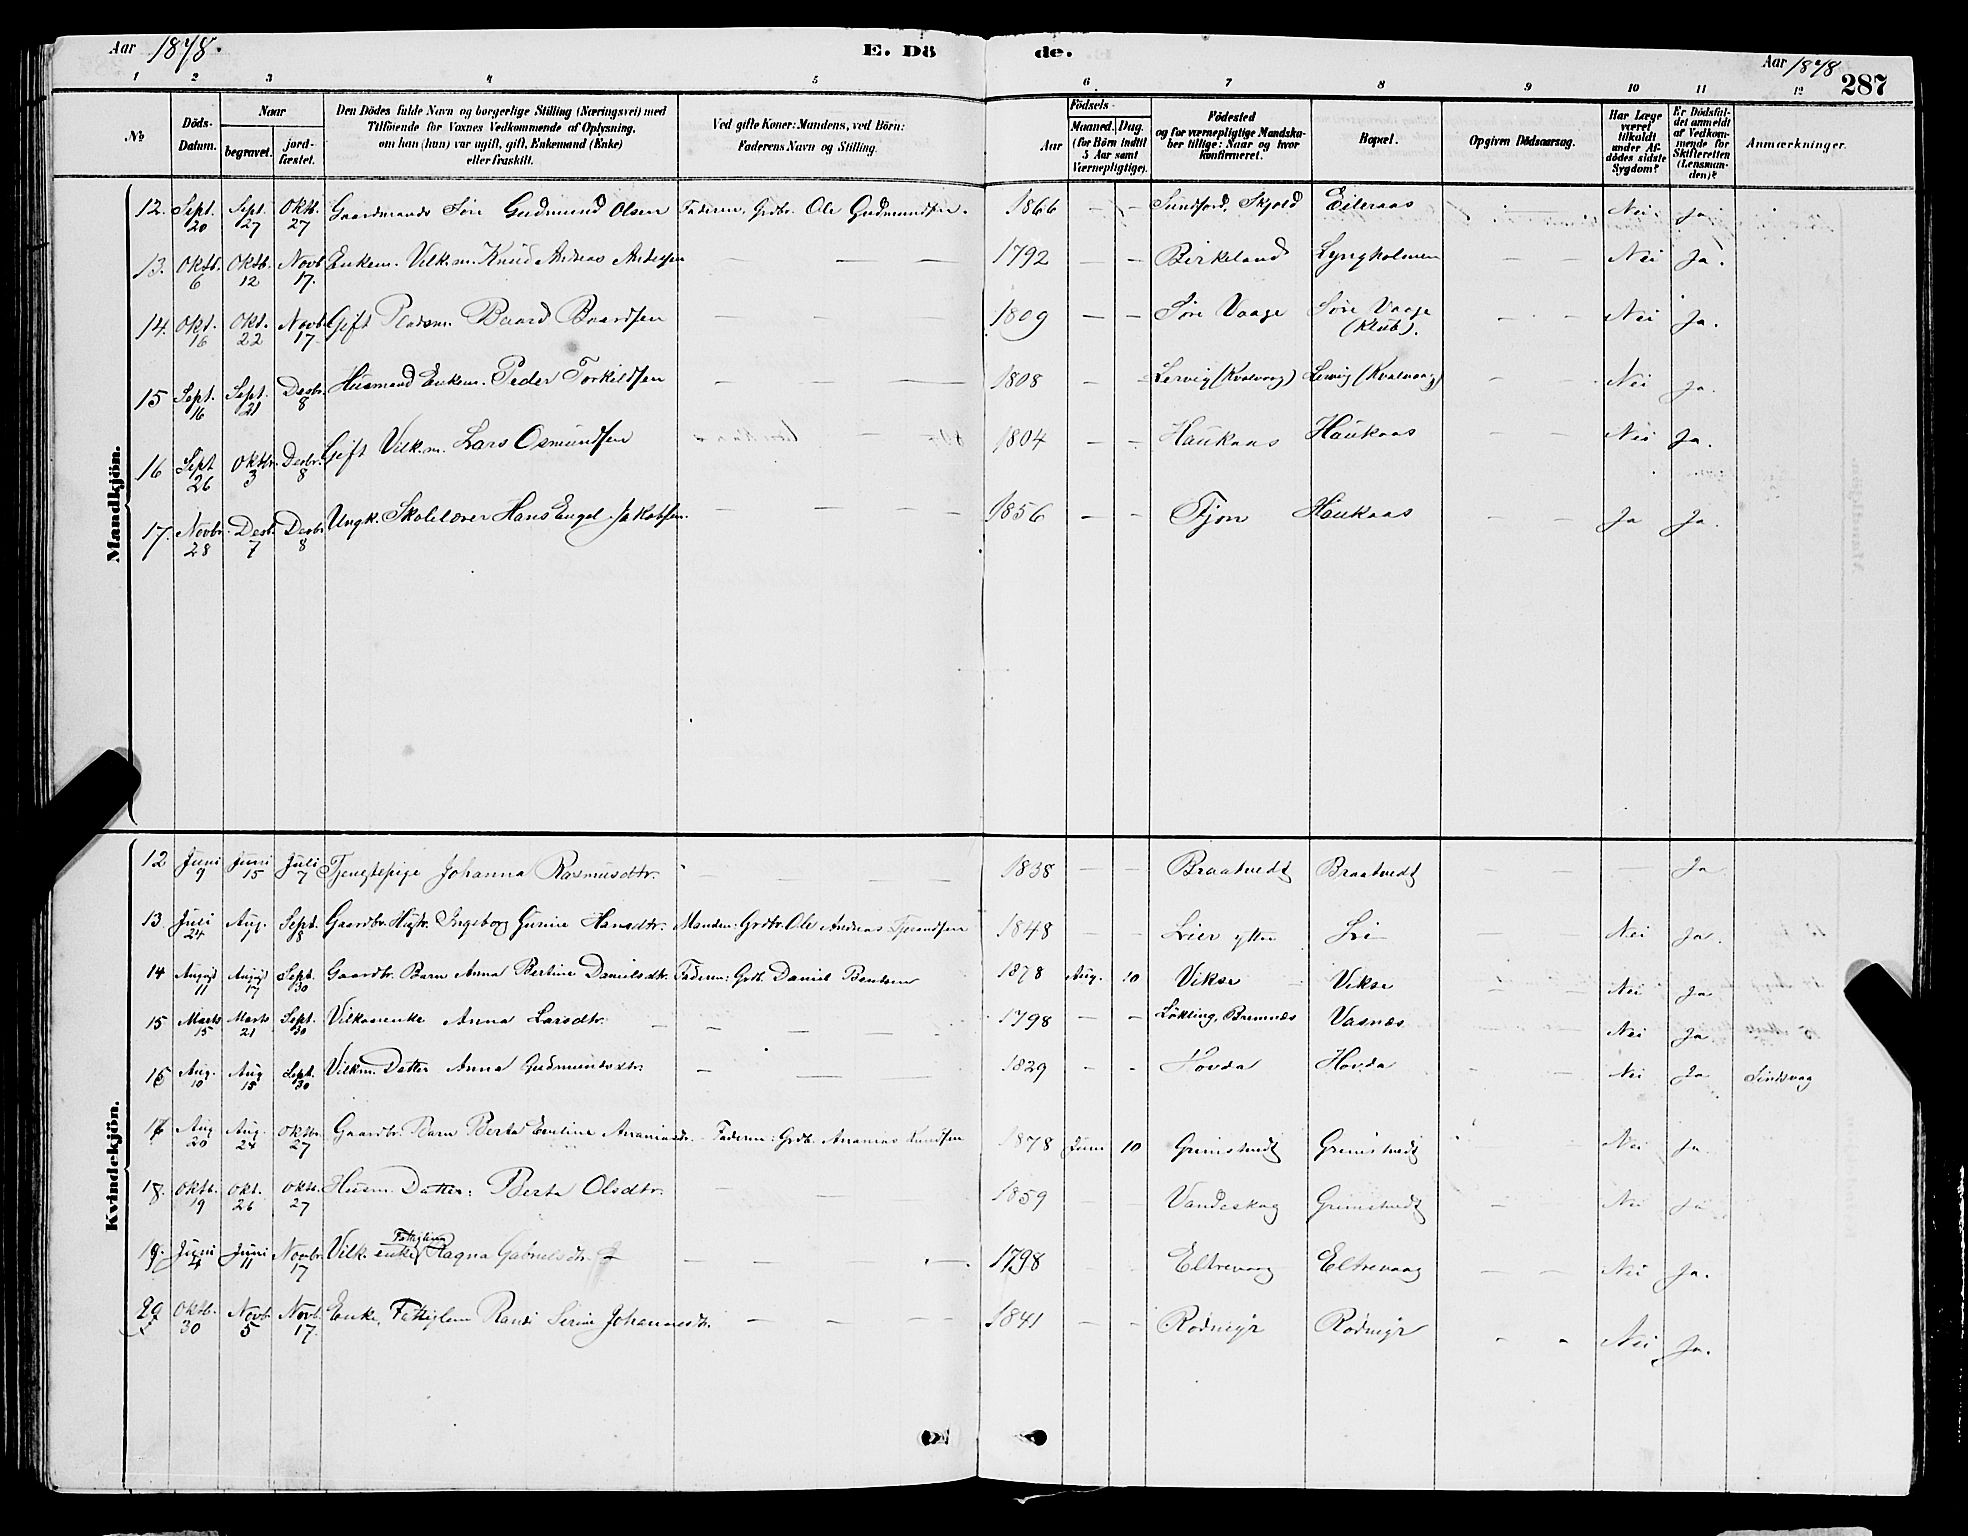 Aar 1878. E. Dö de. Aar 1878 287
1 2 3 4 5 6 7 8 9 10 11 12
№ Döds-Datum. Naar begravet. jordfæstet. Den Dödes fulde Navn og borgerlige Stilling (Næringsvei) med Tilföiende for Voxnes Vedkommende af Oplysning, om han (hun) var ugift, gift, Enkemand (Enke) eller fraskilt. Ved gifte Koner: Mandens, ved Börn: Faderens Navn og Stilling. Födsels- Aar Maaned. Dag. (for Börn indtil 5 Aar samt Værnepligtige). Födested og for værnepligtige Mandskaber tillige: Naar og hvor konfirmeret. Bopæl. Opgiven Dödsaarsag. Har Læge været tilkaldt under Afdödes sidste Sygdom? Er Dödsfaldet anmeldt af Vedkommende for Skifteretten (Lensmanden)? Anmærkninger.
Mandkjön.
12. Sept. 20 Sept. 27 Oktb. 27 Gaardmands Sön Gudmund Olsen Faderen, Grdbr. Ole Gudmundsen. 1866 - - Sundford, Skjold Eileraas - Nei Ja
13. Oktb. 6 Oktb. 12 Novb. 17. Enkem. Vilk.m. Knud Andreas Andersen — — — 1792 - - Birkeland Lyngholmen - - Nei Ja.
14. Okt. 16 Okt. 22 Novb. 17. Gift Pladsm. Baard Baardsen — — — 1809 - - Söre Vaage Söre Vaage (Klub). - - Nei Ja.
15 Sept. 16 Sept. 21 Decbr. 8 Husmand Enkem. Peder Torkildsen — — — 1808 - - Lervig (Kvalvaag) Lervig (Kvalvaag) - - Nei Ja.
16 Sept 26 Oktbr. 3 Decbr. 8 Gift Vilk.m. Lars Osmundsen — 1804 - - Haukaas Haukaas - - Nei Ja.
17. Novbr. 28 Decb. 7 Decbr 8 Ungk. Skolelærer Hans Engel Jakobsen. — — — 1856 - - Fjon Haukaas - - Ja Ja.
Kvindekjön.
12 Juni 9 Juni 15 Juli 7 Tjenestepige Johanna Rasmusdtr. — — — 1838 - - Braatvedt Braatvedt - - — Ja
13. Juli 24 Aug. 1 Sept. 8 Gaardbr. Hustr. Ingeborg Gurine Hansdtr. Manden: Grdbr. Ole Andreas 1848 - - Lier ytre Li - - Nei Ja.
14 August 11 August 17 Sept. 30 Gaardbr. Barn Anna Bertine Danielsdtr. Faderen: Grdb. Daniel Bentsen 1878 Aug. 10 Vikse Vikse - - Nei Ja
15 Marts 15 Marts 21 Sept. 30 Vilkaarenke Anna Larsdtr. — — — 1798 - - Lökling, Bremnæs Vasnæs - Nei Ja
16 Aug. 10 Aug 18 Sept. 30 Vilkm. Datter Anna Gudmundsdtr. — — — 1829 - - Hovda Hovda Nei Ja Sindsvag
17 Aug 20 Aug. 24 Oktbr. 27 Gaardbr. Barn Berta Eveline Faderen: Grdb. Ananias Knudsen 1878 Juni 10 Grimstvedt Grimstvedt - Nei Ja
18. Oktb. 19 Okt. 26 Oktb. 27 Husm. Datter: Berta Olsdtr. — — 1859 - - Vandeskog Grimstvedt - Nei Ja
19. Juni 4 Juni 11 Novbr. 17 Vilk. enke Fattiglem Ragna Gabrielsdtr. — — — 1798 - - Eltrevaag Eltrevaag - - Nei Ja.
20 Oktb. 30 Novb. 5 Novb. 17. Enke, Fattiglem Randi Serine Johannesdtr. — — — 1841 - - Rödmyr Rödmyr - - Nei Ja.